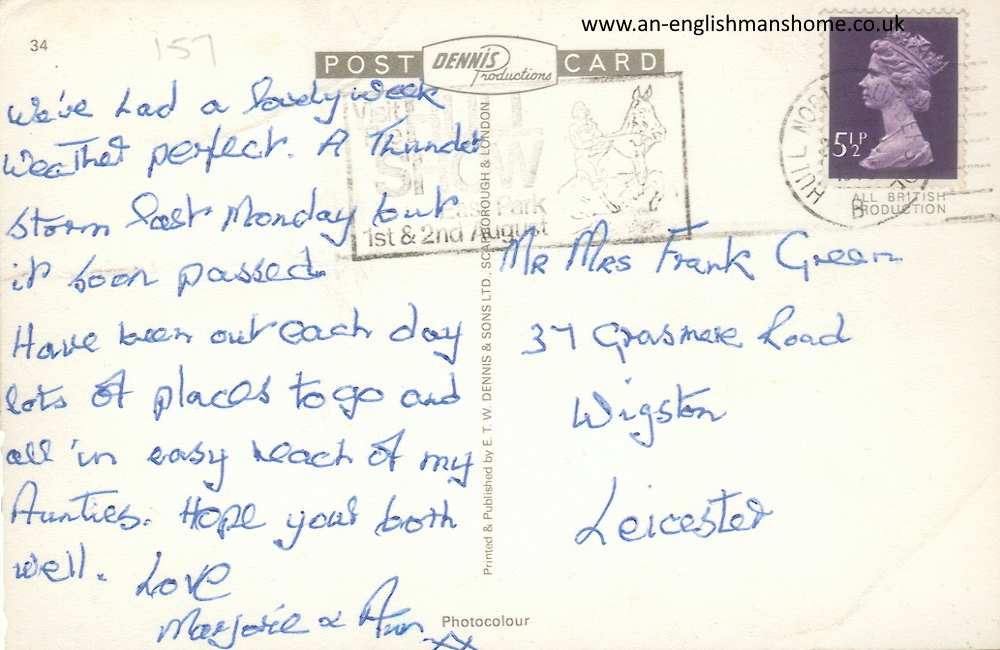 www.an-englishmanshome.co.uk
34
157
POST DENNIS Productions CARD
We've had a lovely week
weather perfect. A Thunder
storm last Monday but
it soon passed.
Have been out each day
lots of places to go and
all in easy reach of my
Aunties. Hope your both
well. Love
Marjorie & Ann
xx
Visit
HULL
SHOW
East Park
1st & 2nd August
Printed & Published by E. T. W. DENNIS & SONS LTD. SCARBOROUGH & LONDON
Photocolour
5½P
HULL NO
ALL BRITISH
PRODUCTION
Mr Mrs Frank Green
37 Grasmere Road
Wigston
Leicester